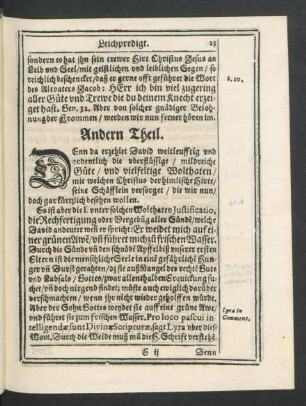 Leichpredigt. 23
sondern es hat jhn sein trewer Hirt Christus Jesus an
Leib vnd Seel/mit geistlichen vnd leiblichen Segen/so
reichlich beschencket/daß er gerne offt geführet die Wort
des Altvaters Jacob: HErr ich bin viel zugering
aller Güte vnd Trewe die du deinem Knecht erzei-
get hast. Gen. 32. Aber von solcher gnädiger Beloh-
nung der Frommen/werden wir nun ferner hören im
s. 10.
Andern Theil.
Denn da erzehlet David weitleufftig vnd
ordentlich die vberflüssige / mildreiche
Güte / vnd vielfeltige Wolthaten/
mit welchen Christus der himlische Hirte/
seine Schäfflein versorget / die wir nun/
doch gar kürtzlich besehen wollen.
Es ist aber die I. vnter solchen Wolthaten Justificatio,
die Rechfertigung oder Vergebung aller Sünde/welche
David andeutet wen er spricht: Er weidet mich auf ei-
ner grünen Awe/vñ führet mich zũ frischen Wasser.
Durch die Sünde vñ den schnöden Apffelbiß vnserer ersten
Eltern ist die menschliche Seele in eine gefährliche Hun-
ger vñ Durst gerahten/
und Labsals / Gottes/zwar allenthalben Erquickung su-
chet/vñ doch nirgend findet; müste auch ewiglich darüber
verschmachten / wenn jhr nicht wieder geholffen würde.
Aber der Sohn Gottes wendet sie auff eine grüne Awe/
vnd führet sie zum frischen Wasser. Pro loco pascui in-
telligendæ sunt Divinæ Scripturæ, sagt Lyra vber diese
Wort. Durch die Weide muß mã die H. Schrifft verstehẽ.
Lyra in
Comment.
C ij Denn